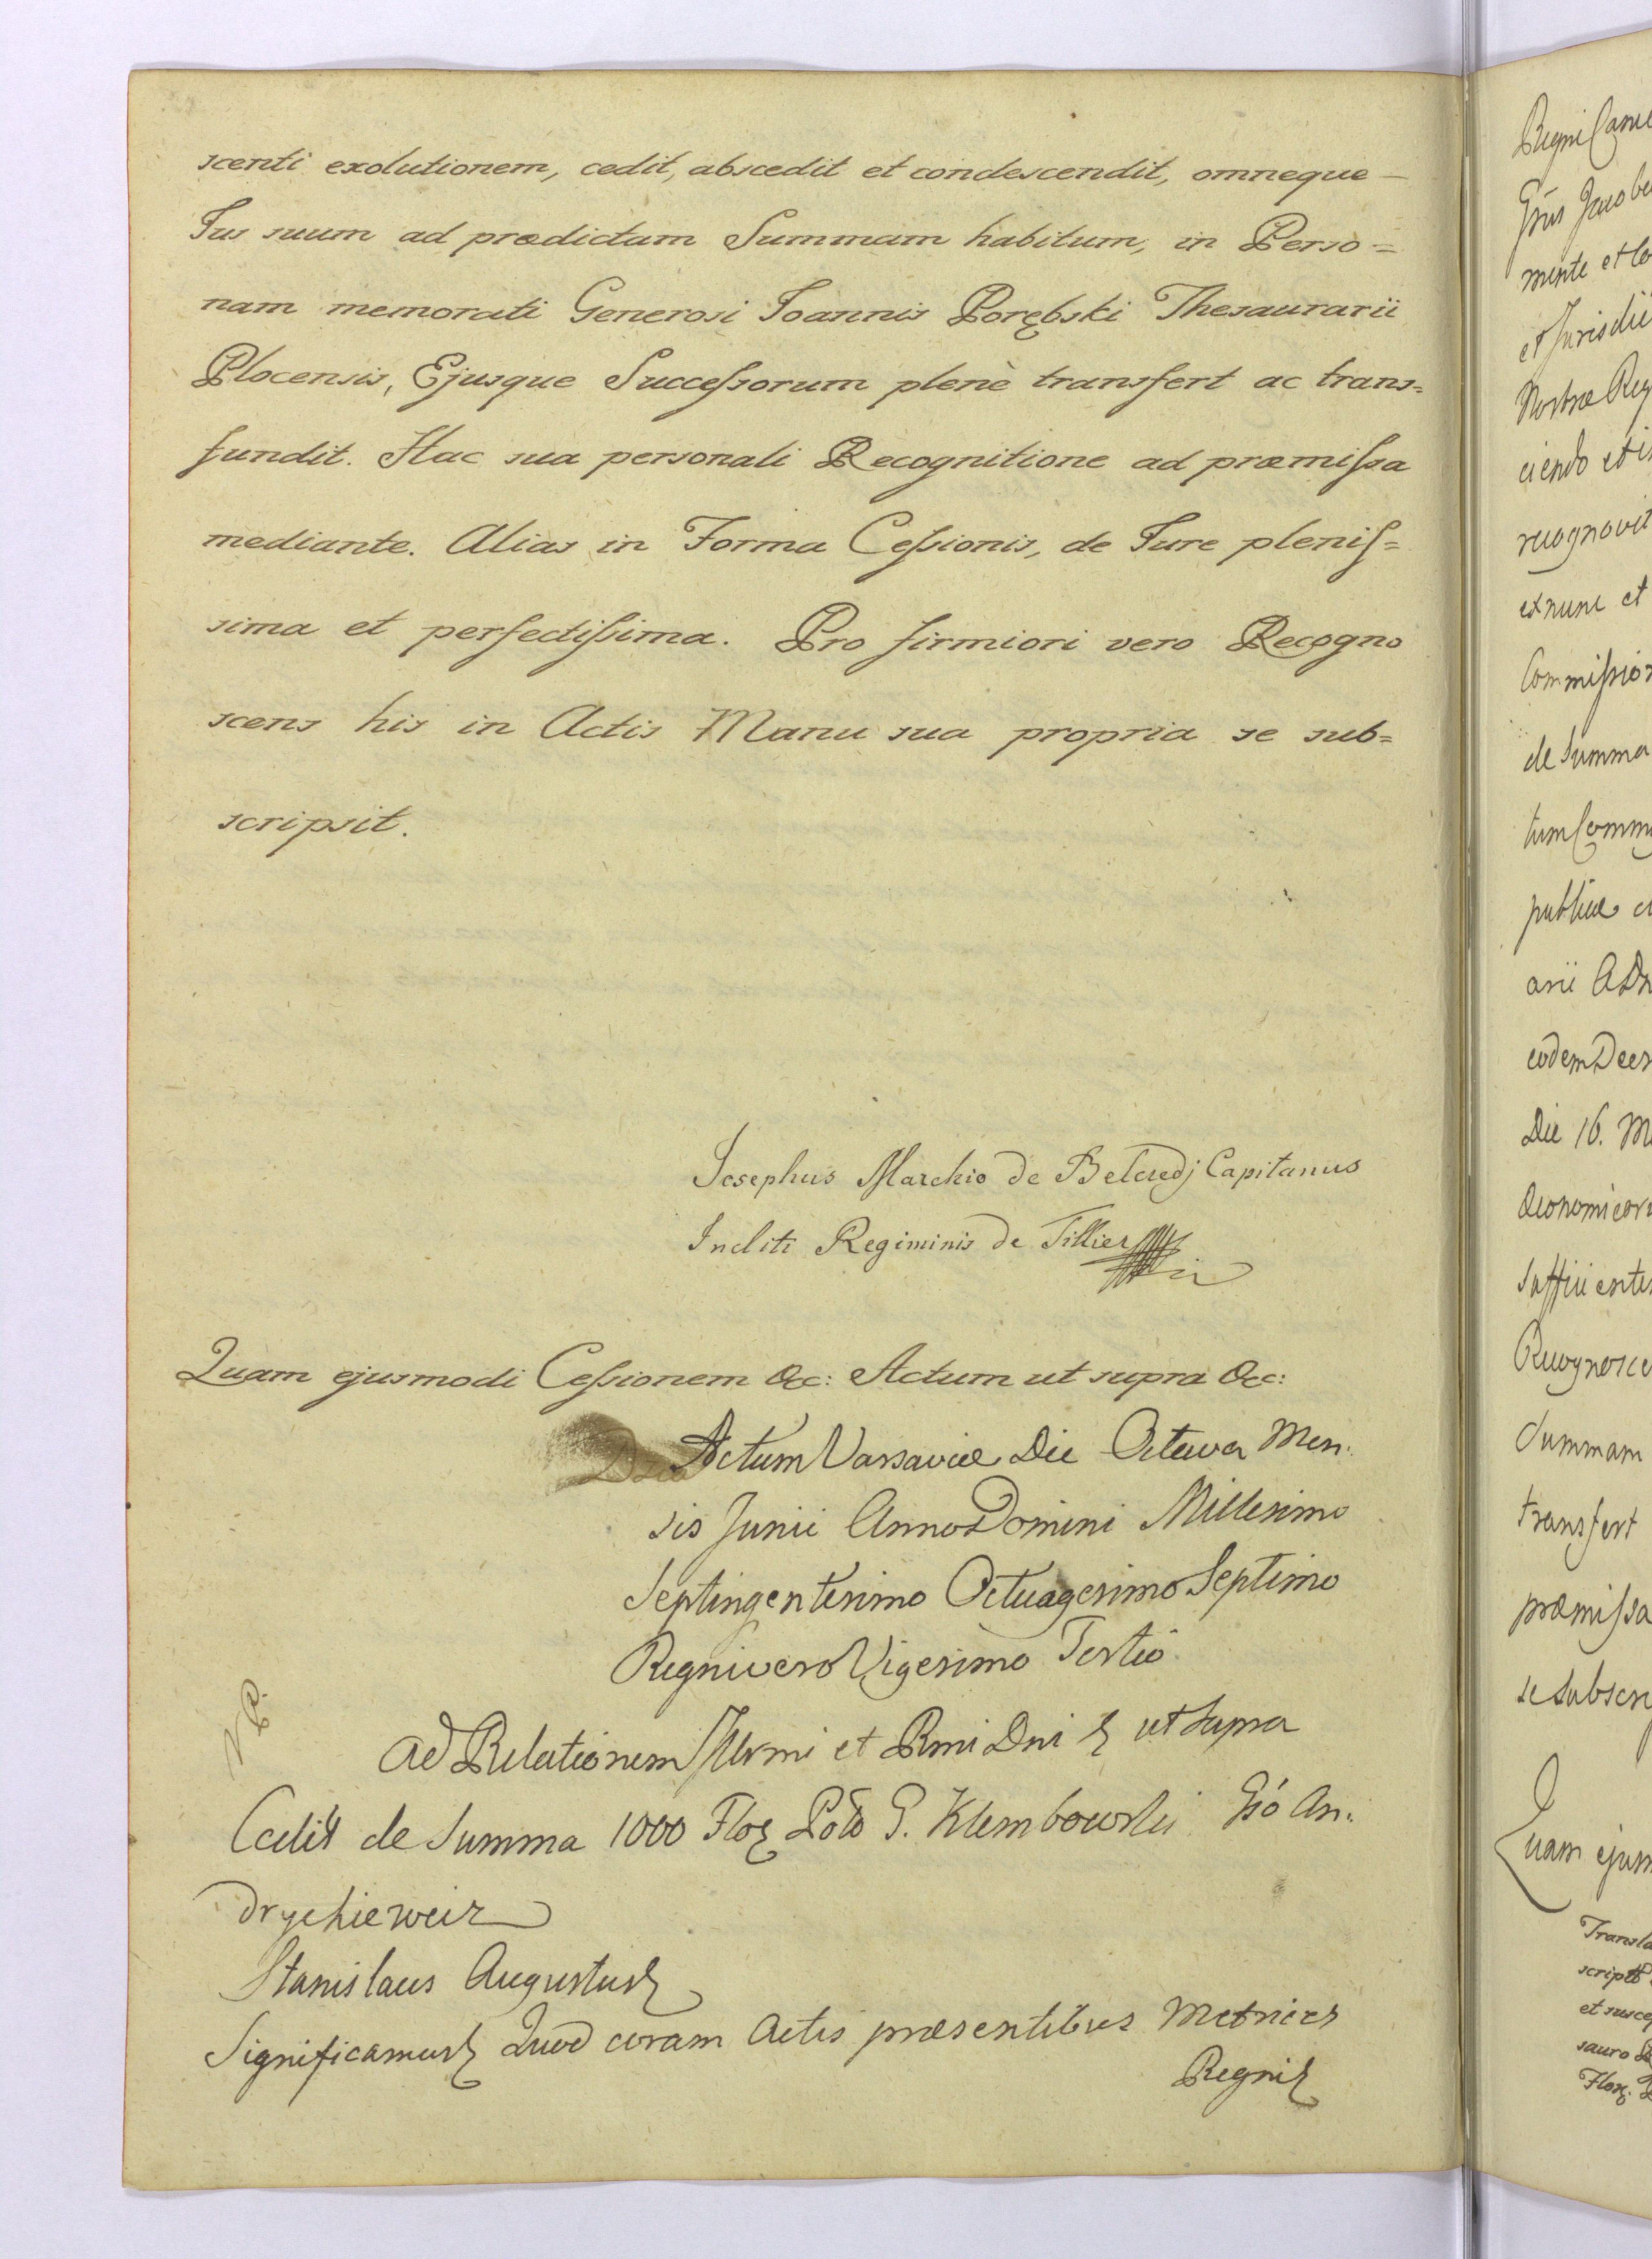 scenti exolutionem, cedit, abscedit et condescendit, omneque –
Jus suum ad prædictam Summam habitum, in Perso=
nam memorati Generosi Joannis Porębski Thesaurarii
Plocensis, Ejusque Succeſsorum plenè transfert ac trans=
fundit. Hac sua personali Recognitione ad præmiſsa
mediante. Alias in Forma Ceſsionis, de Jure pleniſ=
sima et perfectiſsima. Pro firmiori vero Recogno
scens his in Actis Manu sua propria se sub=
scripsit.
Josephus Marchio de Belcredj Capitanus
Incliti Regiminis de Tillier
Quam ejusmodi Ceſsionem &c: Actum ut supra &c:
Actum Varsaviæ Die Octava Men.
sis Junii Anno Domini Millesimo
Septingentesimo Octuagesimo Septimo
Regni vero Vigesimo Tertio
Ad Relationem Illrmi et Rmi Dni ut supra
Cedit de Summa 1000 Flor Polo G. Klembowski Gso An.
drychiewicz
Stanislaus Augustus
Significamus Quod coram Actis præsentibus Metrices
Regni
Regni
mente et
et Jurisdi
Nostræ Reg
ciendo et
recognovit
ex nunc et
Commiſsio
de Summa
tum Comm
publicæ
arii
eodem Decr
Die 16. M
Œconomicor
sufficientes
Recognosce
Summam
transfert
præmiſsa
se subscr
Quam ejusm
Transla
script
et susce
sauro
Flor.